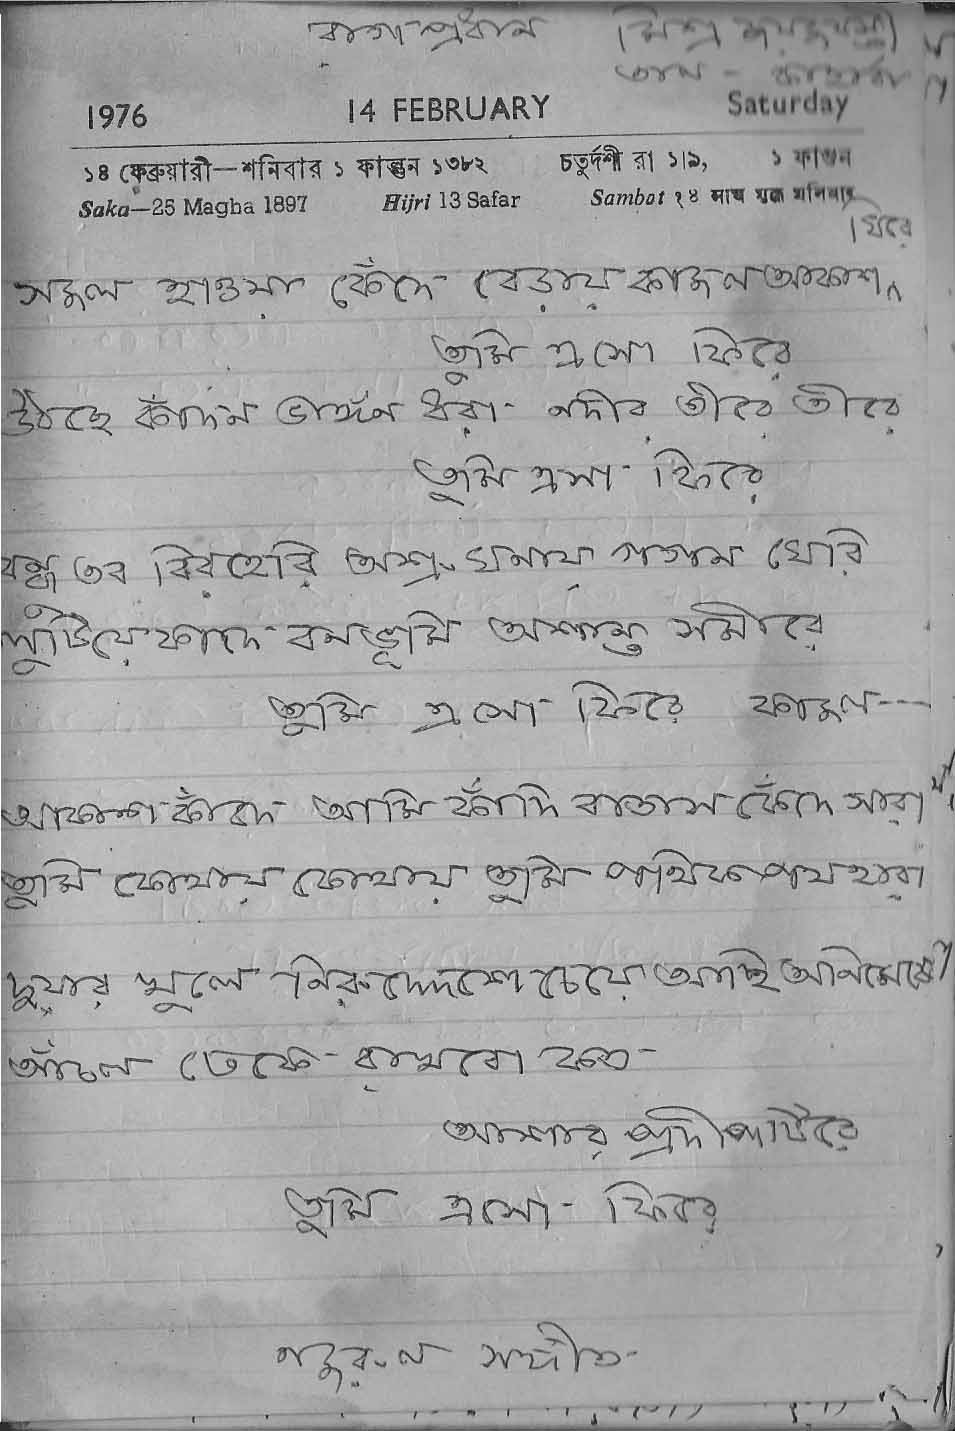 রাগপ্রধান মিশ্র জয়জয়ন্তী
তাল - কাহারবা
1976 14 FEBRUARY Saturday
১৪ ফেব্রুয়ারী—শনিবার ১ ফাল্গুন ১৩৮২ চতুর্দশী রা ১।৯, ১ ফাগুন
Saka—25 Magha 1897 Hijri 13 Safar Sambat १४ माघ शुक्ल शनिवार
ঘিরে
সজল হাওয়া কেঁদে বেড়ায় কাজল আকাশ
তুমি এসো ফিরে
উঠছে কাঁদন ভাঙ্গন ধরা নদীর তীরে তীরে
তুমি এসো ফিরে
বন্ধু তব বিরহেরি অশ্রু ঘনায় গগন ঘেরি
লুটিয়ে কাঁদে বনভূমি অশান্ত সমীরে
তুমি এসো ফিরে কাজল---
আকাশ কাঁদে আমি কাঁদি বাতাস কেঁদে সারা
তুমি কোথায় কোথায় তুমি পথিক পথহারা
দুয়ার খুলে নিরুদ্দেশে চেয়ে আছি অনিমেষে
আঁচল ঢেকে রাখবো কত
আশার প্রদীপটিরে
তুমি এসো ফিরে
নজরুল সঙ্গীত